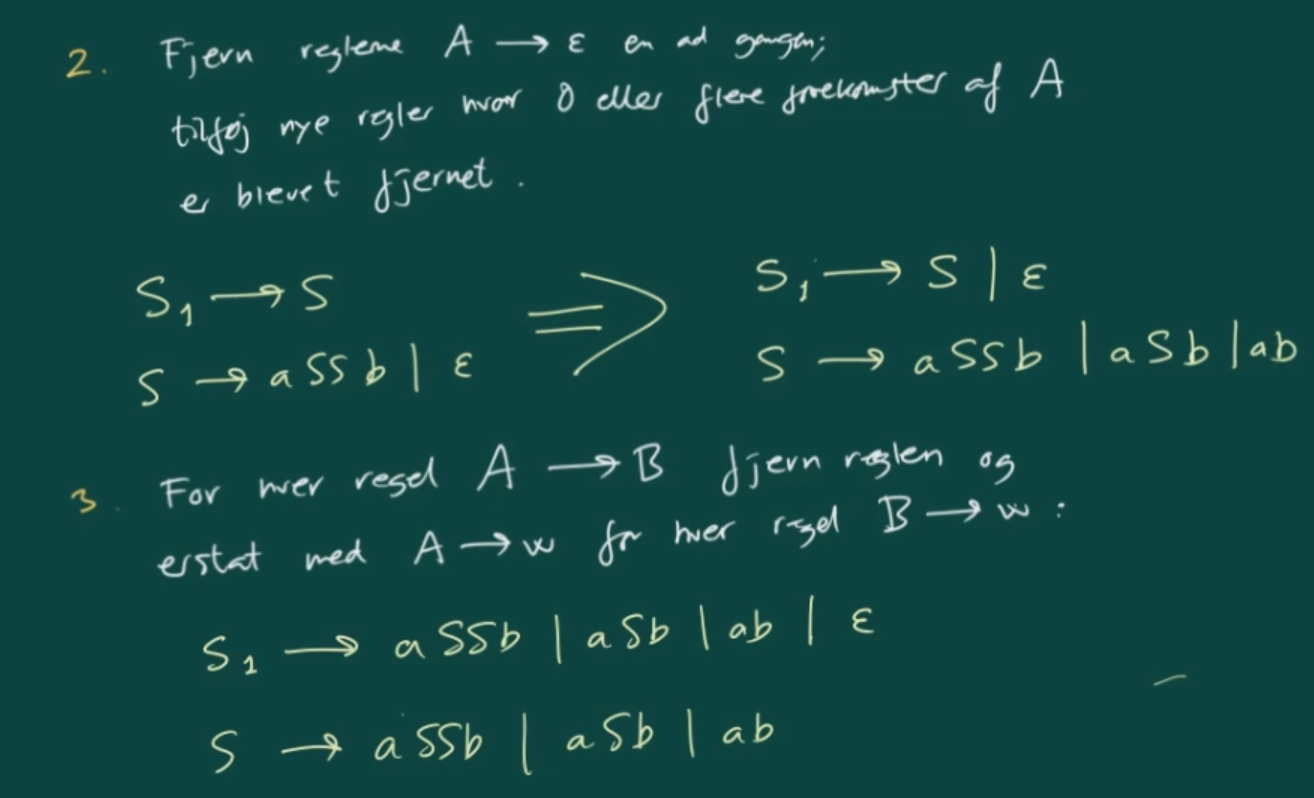 2. Fjern reglerne A → ε en ad gangen;
tilføj nye regler hvor 0 eller flere forekomster af A
er blevet fjernet.
S₁ → S ⇒ S₁ → S | ε
S → aSSb | ε S → aSSb | aSb | ab
3. For hver regel A → B fjern reglen og
erstat med A → w for hver regel B → w :
S₁ → aSSb | aSb | ab | ε
S → aSSb | aSb | ab